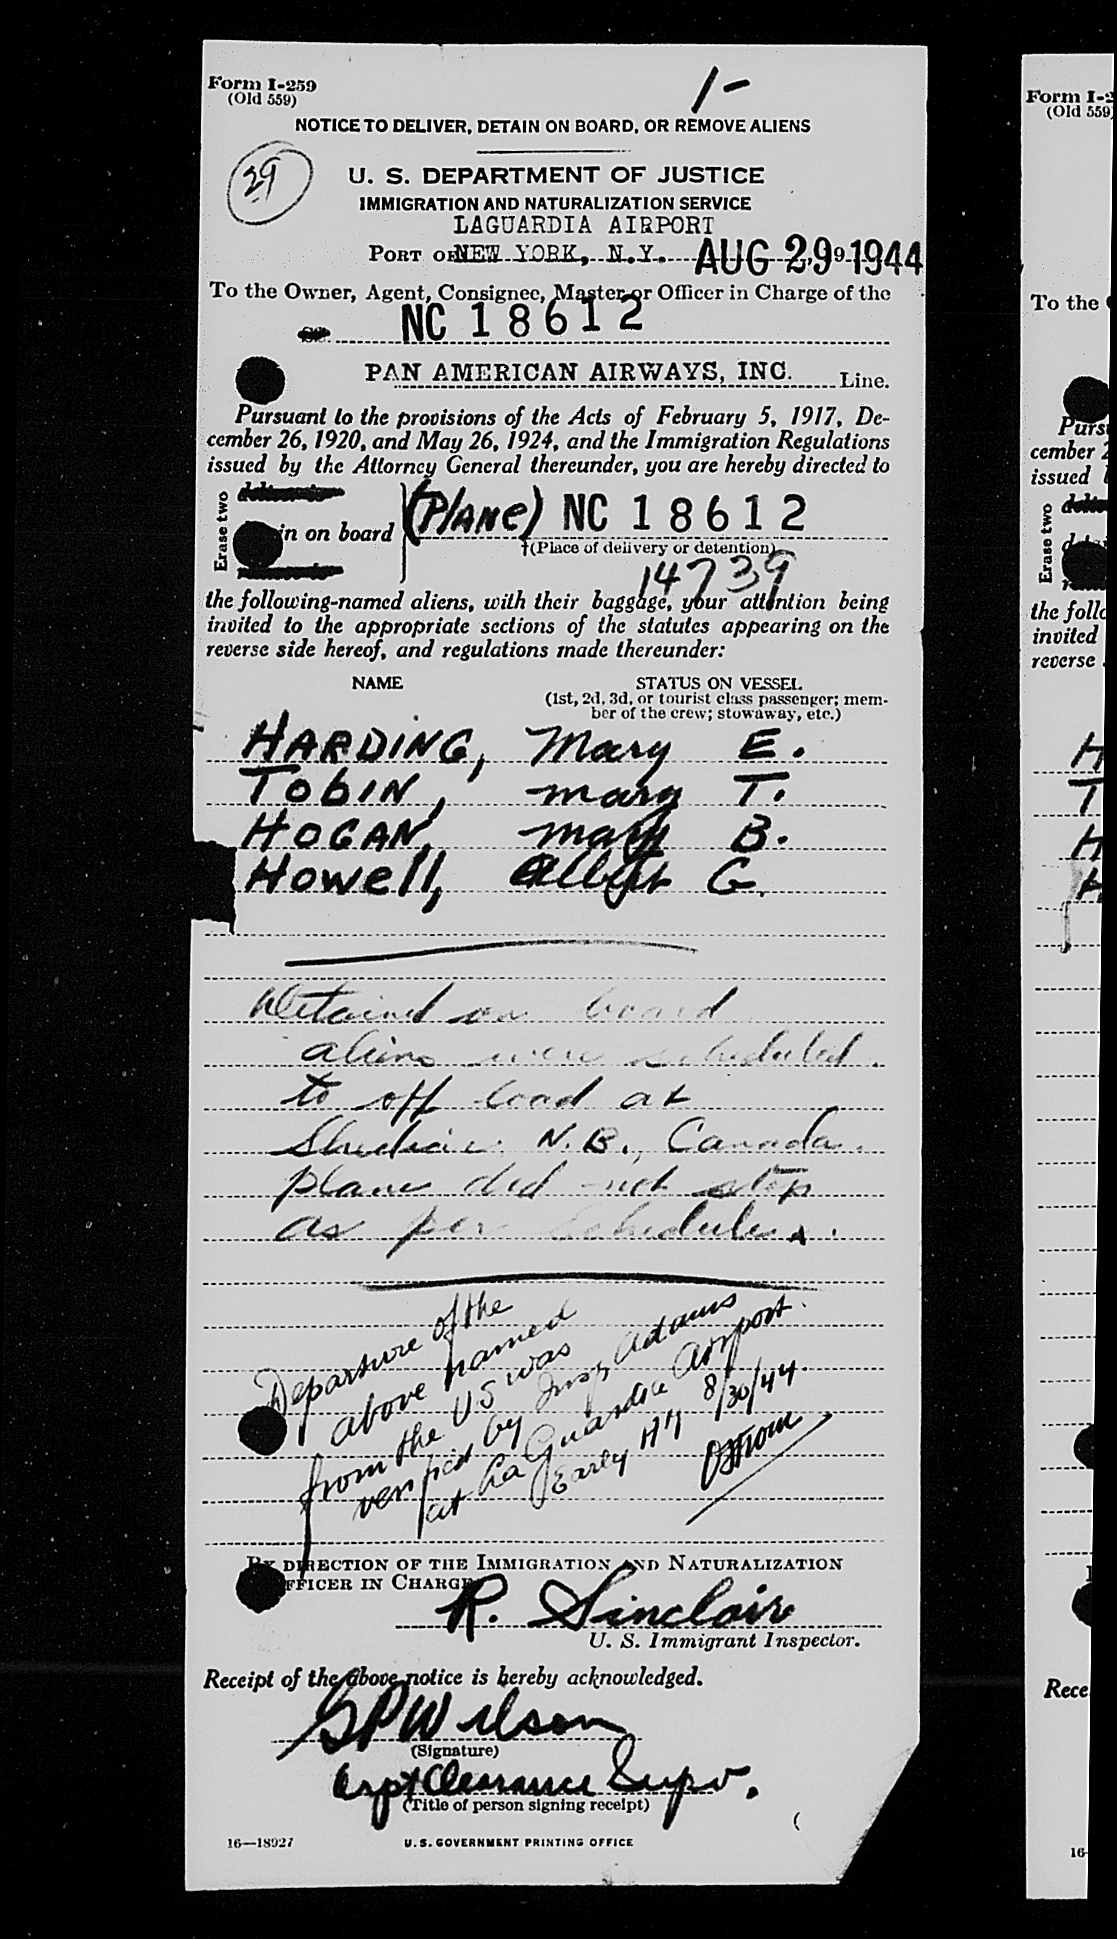 Form I-259
(Old 559)
1-
NOTICE TO DELIVER, DETAIN ON BOARD, OR REMOVE ALIENS
29
U. S. DEPARTMENT OF JUSTICE
IMMIGRATION AND NATURALIZATION SERVICE
LAGUARDIA AIRPORT
PORT OF NEW YORK, N.Y. AUG 29 1944
To the Owner, Agent, Consignee, Master or Officer in Charge of the
NC 18612
PAN AMERICAN AIRWAYS, INC. Line.
Pursuant to the provisions of the Acts of February 5, 1917, De-
cember 26, 1920, and May 26, 1924, and the Immigration Regulations
issued by the Attorney General thereunder, you are hereby directed to
Erase two
in on board (PlANe) NC 18612
†(Place of delivery or detention)
14739
the following-named aliens, with their baggage, your attention being
invited to the appropriate sections of the statutes appearing on the
reverse side hereof, and regulations made thereunder:
NAME STATUS ON VESSEL
(1st, 2d, 3d, or tourist class passenger; mem-
ber of the crew; stowaway, etc.)
HARDING, Mary E.
TobIN, mary T.
HOGAN, mary B.
Howell, Albert G.
Detained on board
aliens were scheduled
to off load at
Shediac N.B., Canada.
plane did not stop
as per schedule.
Departure of the
above named
from the US was
verified by Insp Adams
at La Guardia Airport
Early AM 8/30/44
Ostrom
BY DIRECTION OF THE IMMIGRATION AND NATURALIZATION
OFFICER IN CHARGE
R. Sinclair
U. S. Immigrant Inspector.
Receipt of the above notice is hereby acknowledged.
GPWilson
(Signature)
Arpt Clearance Supv.
(Title of person signing receipt)
16—18927 U.S. GOVERNMENT PRINTING OFFICE
Form I-2
(Old 559
To the
Purs
cember 2
issued
Erase two
the follo
invited
reverse
H
T
H
H
Rece
16-